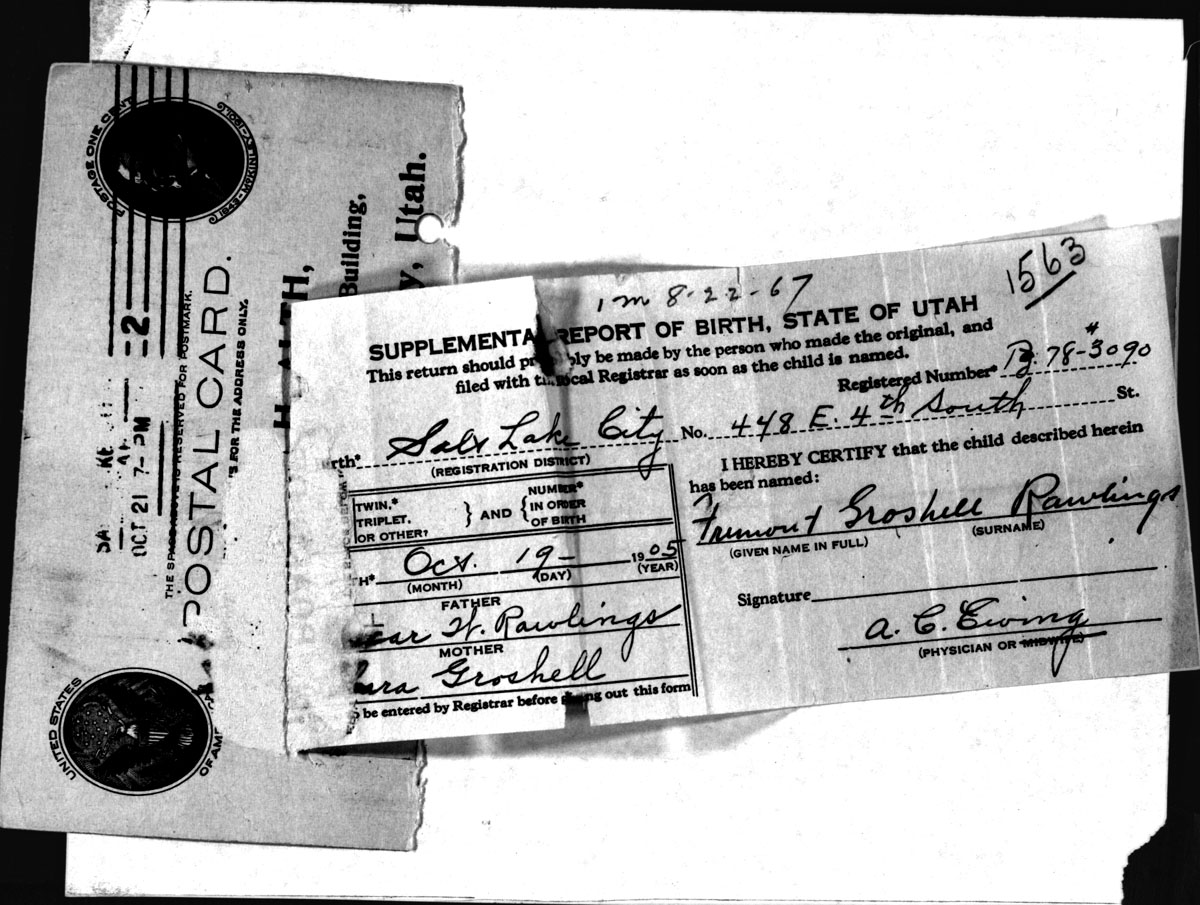 POSTAGE ONE CENT
1843-MCKINLEY-1901
OCT 21 7-PM
2
THE SPACE ABOVE IS RESERVED FOR POSTMARK.
POSTAL CARD.
FOR THE ADDRESS ONLY.
UNITED STATES
Building,
Utah.
1m 8-22-67
1563
SUPPLEMENTA REPORT OF BIRTH, STATE OF UTAH
This return should pr bly be made by the person who made the original, and
filed with t local Registrar as soon as the child is named.
Registered Number* B. 78-3090
rth* Salt Lake City No. 448 E. 4th South St.
(REGISTRATION DISTRICT)
I HEREBY CERTIFY that the child described herein
has been named:
TWIN,*
TRIPLET,
OR OTHER?
} AND {
NUMBER*
IN ORDER
OF BIRTH
Fremont Groshell Rawlings
(GIVEN NAME IN FULL) (SURNAME)
H* Oct. 19- 1905
(MONTH) (DAY) (YEAR)
FATHER
car W. Rawlings
MOTHER
ura Groshell
be entered by Registrar before ng out this form
Signature
A. C. Ewing
(PHYSICIAN OR MIDWIFE)